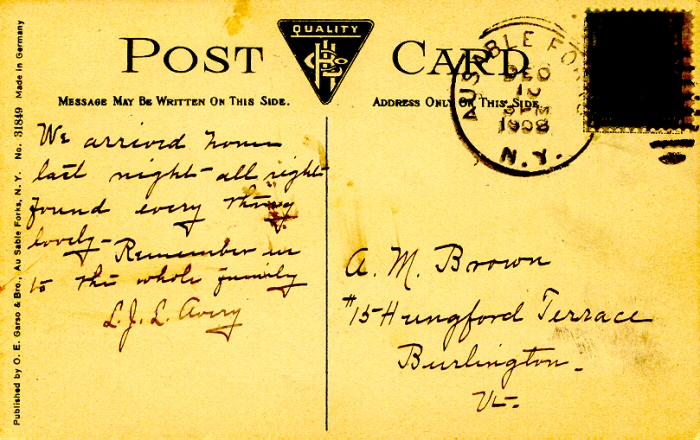 Published by O. E. Garso & Bro., Au Sable Forks, N. Y. No. 31849 Made in Germany
POST CARD
QUALITY
MESSAGE MAY BE WRITTEN ON THIS SIDE.
ADDRESS ONLY ON THIS SIDE
AUSABLE FO
DEC
12
PM
1908
N.Y.
We arrived home
last night - all right
found every thing
lovely - Remember us
to the whole family
L. J. L. Avery
A. M. Brown
#15 Hungford Terrace
Burlington.
Vt.